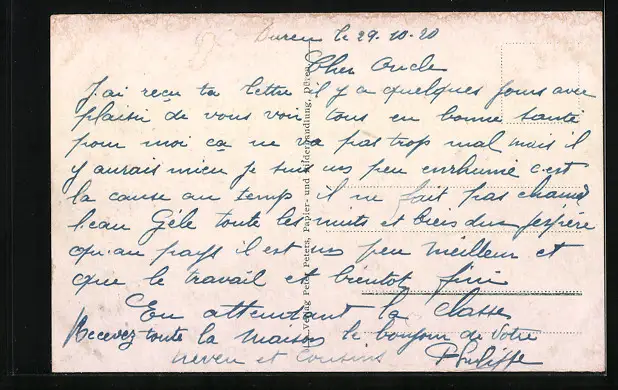 Duren le 29-10-20
Cher Oncle
J'ai reçu ta lettre il y a quelques jours avec
plaisir de vous voir tous en bonne santé
pour moi ça ne va pas trop mal mais il
y aurais mieu je suis un peu enrhumé c'est
la cause au temp il ne fait pas chaud
l'eau Gèle toute les nuits et bien dur j'espère
qu'au pays il est un peu meilleur et
que le travail et bientot fini
En attendant la classe
Recevez toute la maison le bonjour de votre
neveu et cousins Philippe
Verlag Peter Peters, Papier- und Bilderhandlung, Düren